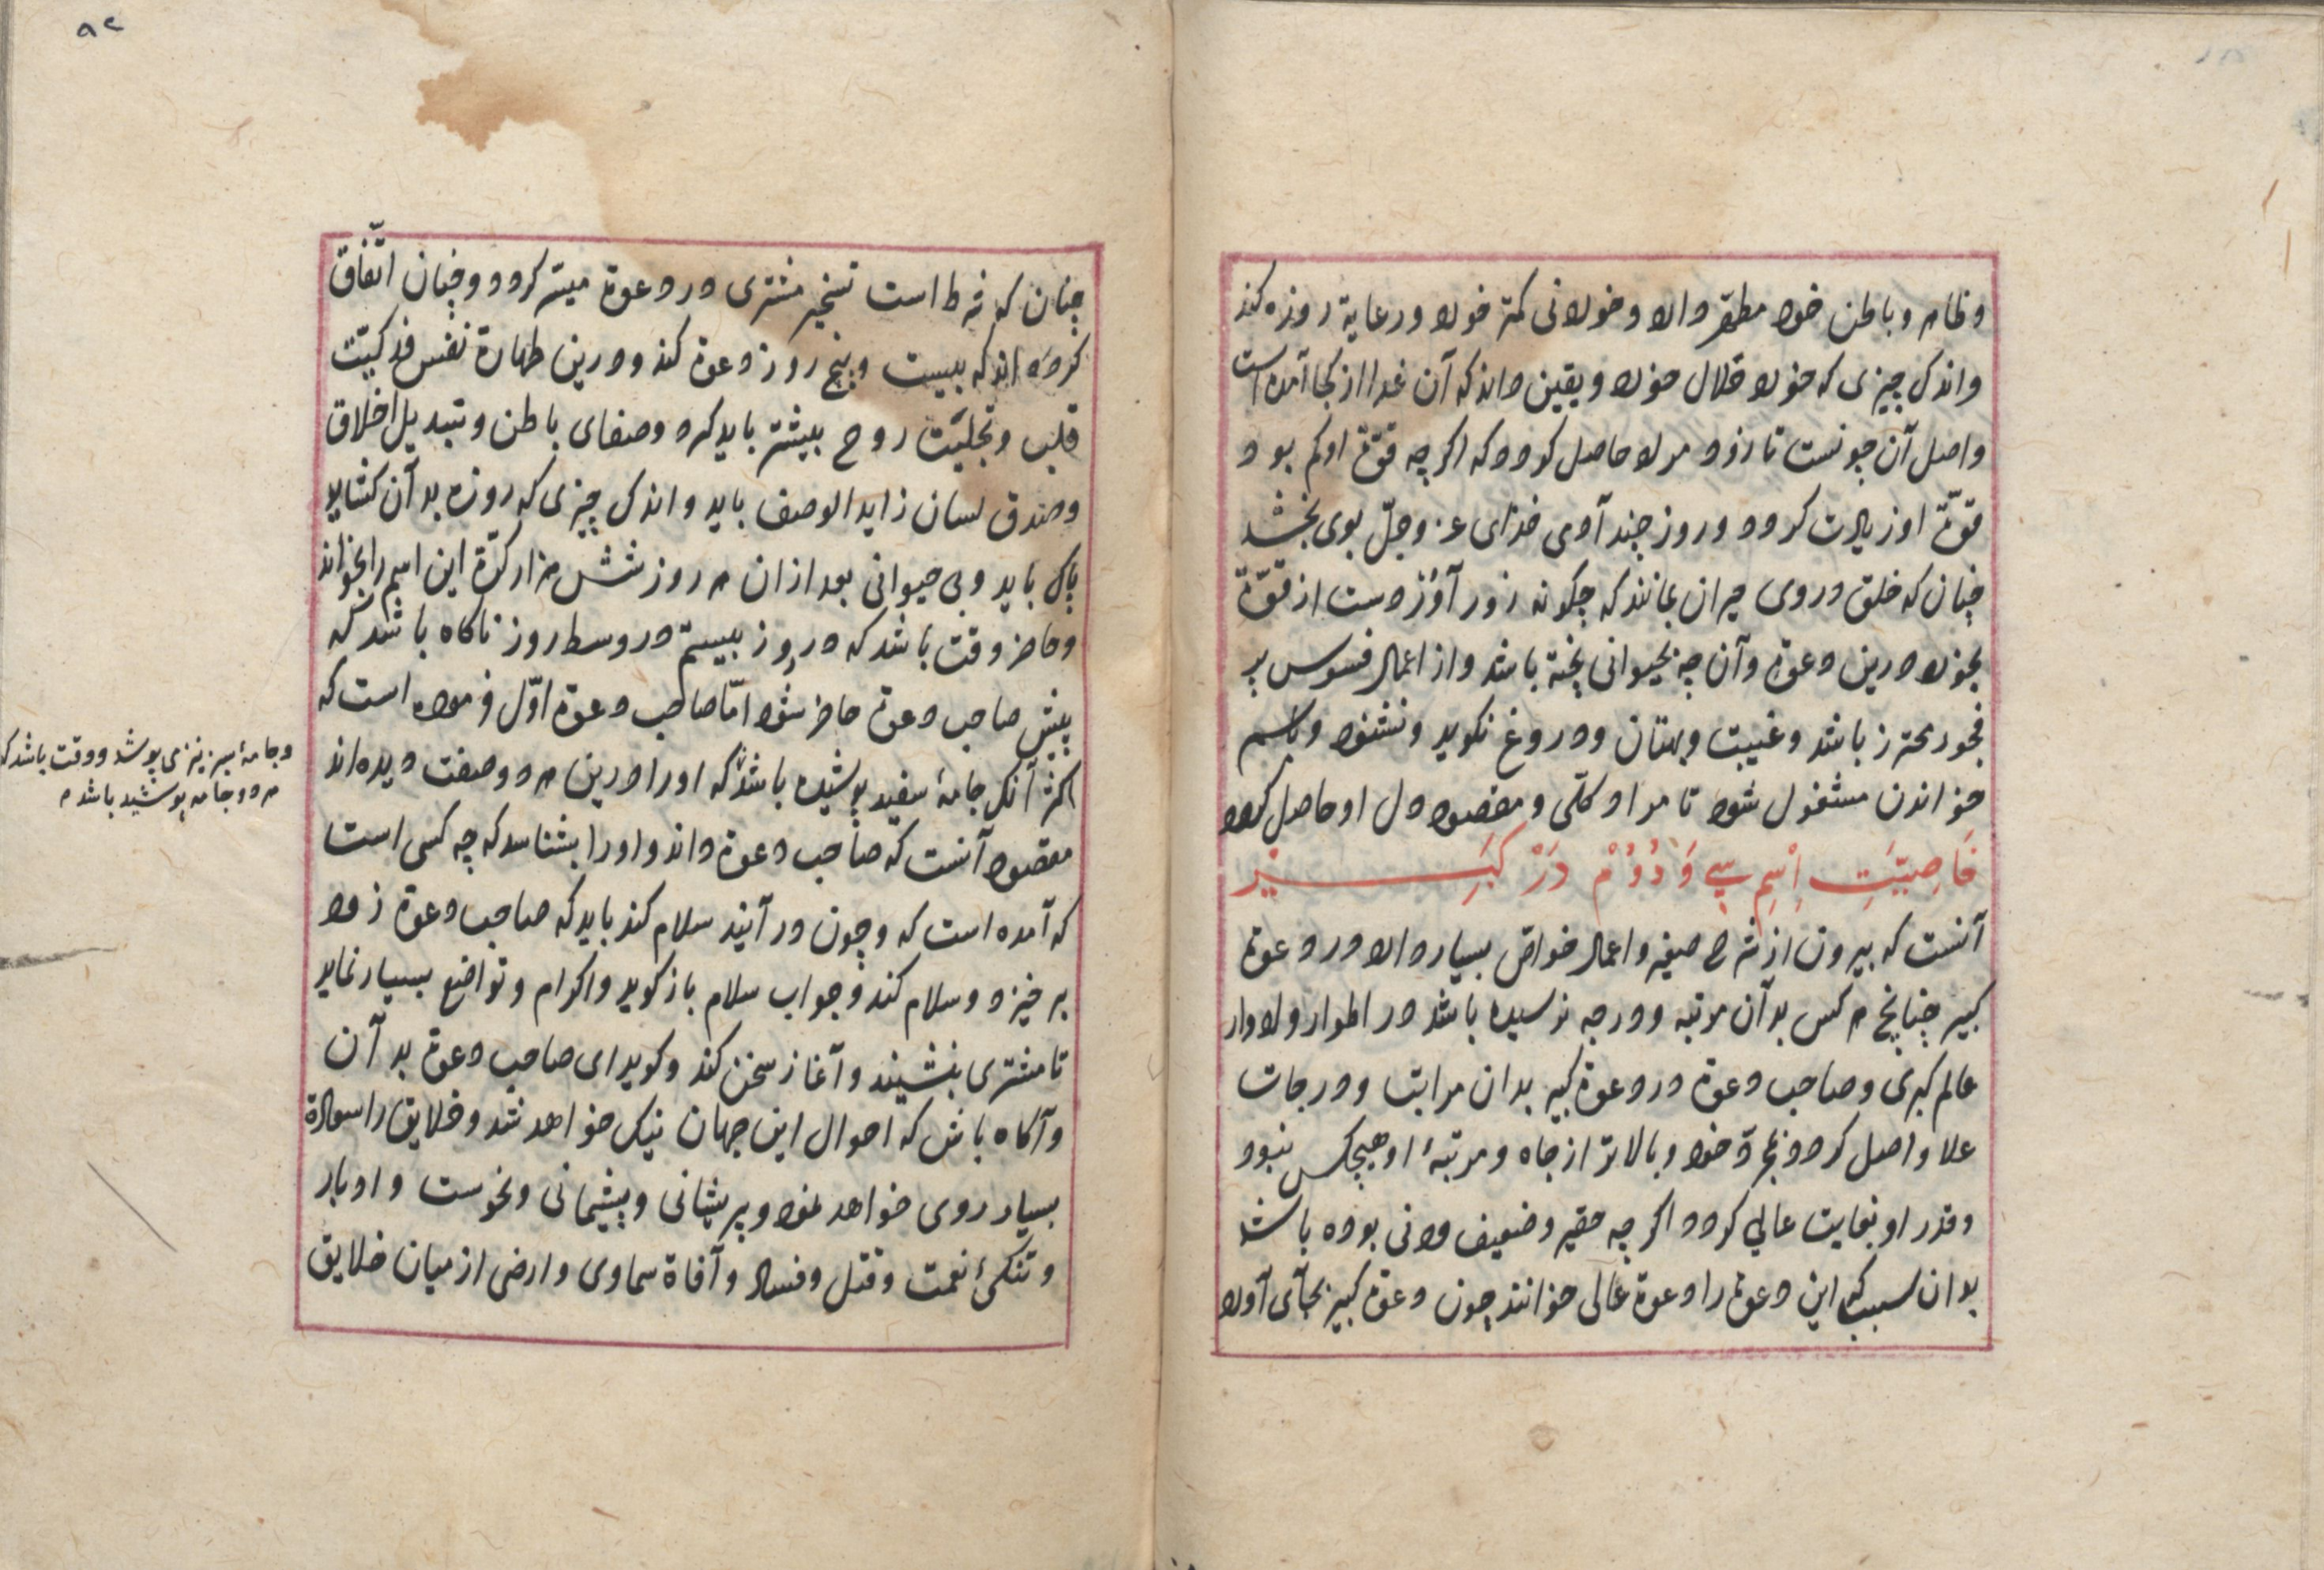 وظاهر وباطن خود مطهّر دارد وخوردنی کمتر خورد ورعایة روزه کند
واندک چیزی که خورد حلال خورد ویقین داند که آن غدا از کجا آمده است
واصل آن چونست تا زود مراد حاصل کردد که اکر چه قوّة او کم بود
قوّة او زیادت کردد وزور چند آدمی خدای عز وجلّ بوی بخشد
چنان که خلق در وی حیران بمانند که چکونه زور آورد است از قوّة
بخورد درین دعوة وآن چه بحیوانی پخته باشد واز اعمال فسوس بر
فجور محترز باشد وغیبت وبهتان ودروغ نکوید ونشنود وباسم
خواندن مشغول شود تا مراد کلّی ومقصود دل او حاصل کردد
خَاصِیَّتِ اِسْمِ سِی وَدُوُمْ دَرْ کَبِیرْ
آنست که بیرون از شرح صغیر واعمال خواصّ بسیار دارد در دعوة
کبیر چنانچ هر کس بدآن مرتبه ودرجه نرسیده باشد در اطوار وادوار
عالم کبری وصاحب دعوة در دعوة کبیر بدان مراتب ودرجات
علا واصل کردد وبالاتر از جاه ومرتبۀ او هیچکس نبود
وقدر او بغایت عالی کردد اکر چه حقیر وضعیف ودنی بوده باشد
بدان سبب که این دعوة را دعوة عالی خوانند چون دعوة کبیر بجآی آورد
۸۲
چنان که شرط است تسخیر مشتری در دعوة میسّر کردد وچنان اتّفاق
کرده اند که بیست وپنج روز دعوة کند ودرین طهارة نفس
قلب وتجلیّت روح بیشتر باید کرد وصفای باطن وتبدیل اخلاق
وصدق لسان زاید الوصف باید واندک چیزی که روزه بدآن کشاید
پاک باید وبی حیوانی بعد ازان هر روز شش هزار کرّة این اسم را بخواند
وحاضر وقت باشد که در روز بیستم در وسط روز ناکاه باشد که
پیش صاحب دعوة حاضر شود امّا صاحب دعوة اوّل فرموده است که
اکثر آنک جامۀ سفید پوشیده باشد که اورا درین هر دو صفت دیده اند
مقصود آنست که صاحب دعوة داند واورا بشناسد که چه کسی است
که آمده است که وچون در آیند سلام کند باید که صاحب دعوة زود
بر خیزد وسلام کند وجواب سلام باز کوید واکرام وتواضع بسیار نماید
تا مشتری بنشیند وآغاز سخن کند وکوید ای صاحب دعوة بدآن
وآکاه باش که احوال این جهان نیک خواهد شد وخلایق را سعادة
بسیار روی خواهد نمود وپریشانی وپشیمانی ونحوست وادبار
وتنکئ نعمت وقتل وفساد وآفاة سماوی وارضی از میان خلایق
وجامۀ سبز نیز می پوشد ووقت باشد که
هر دو جامه پوشید باشد